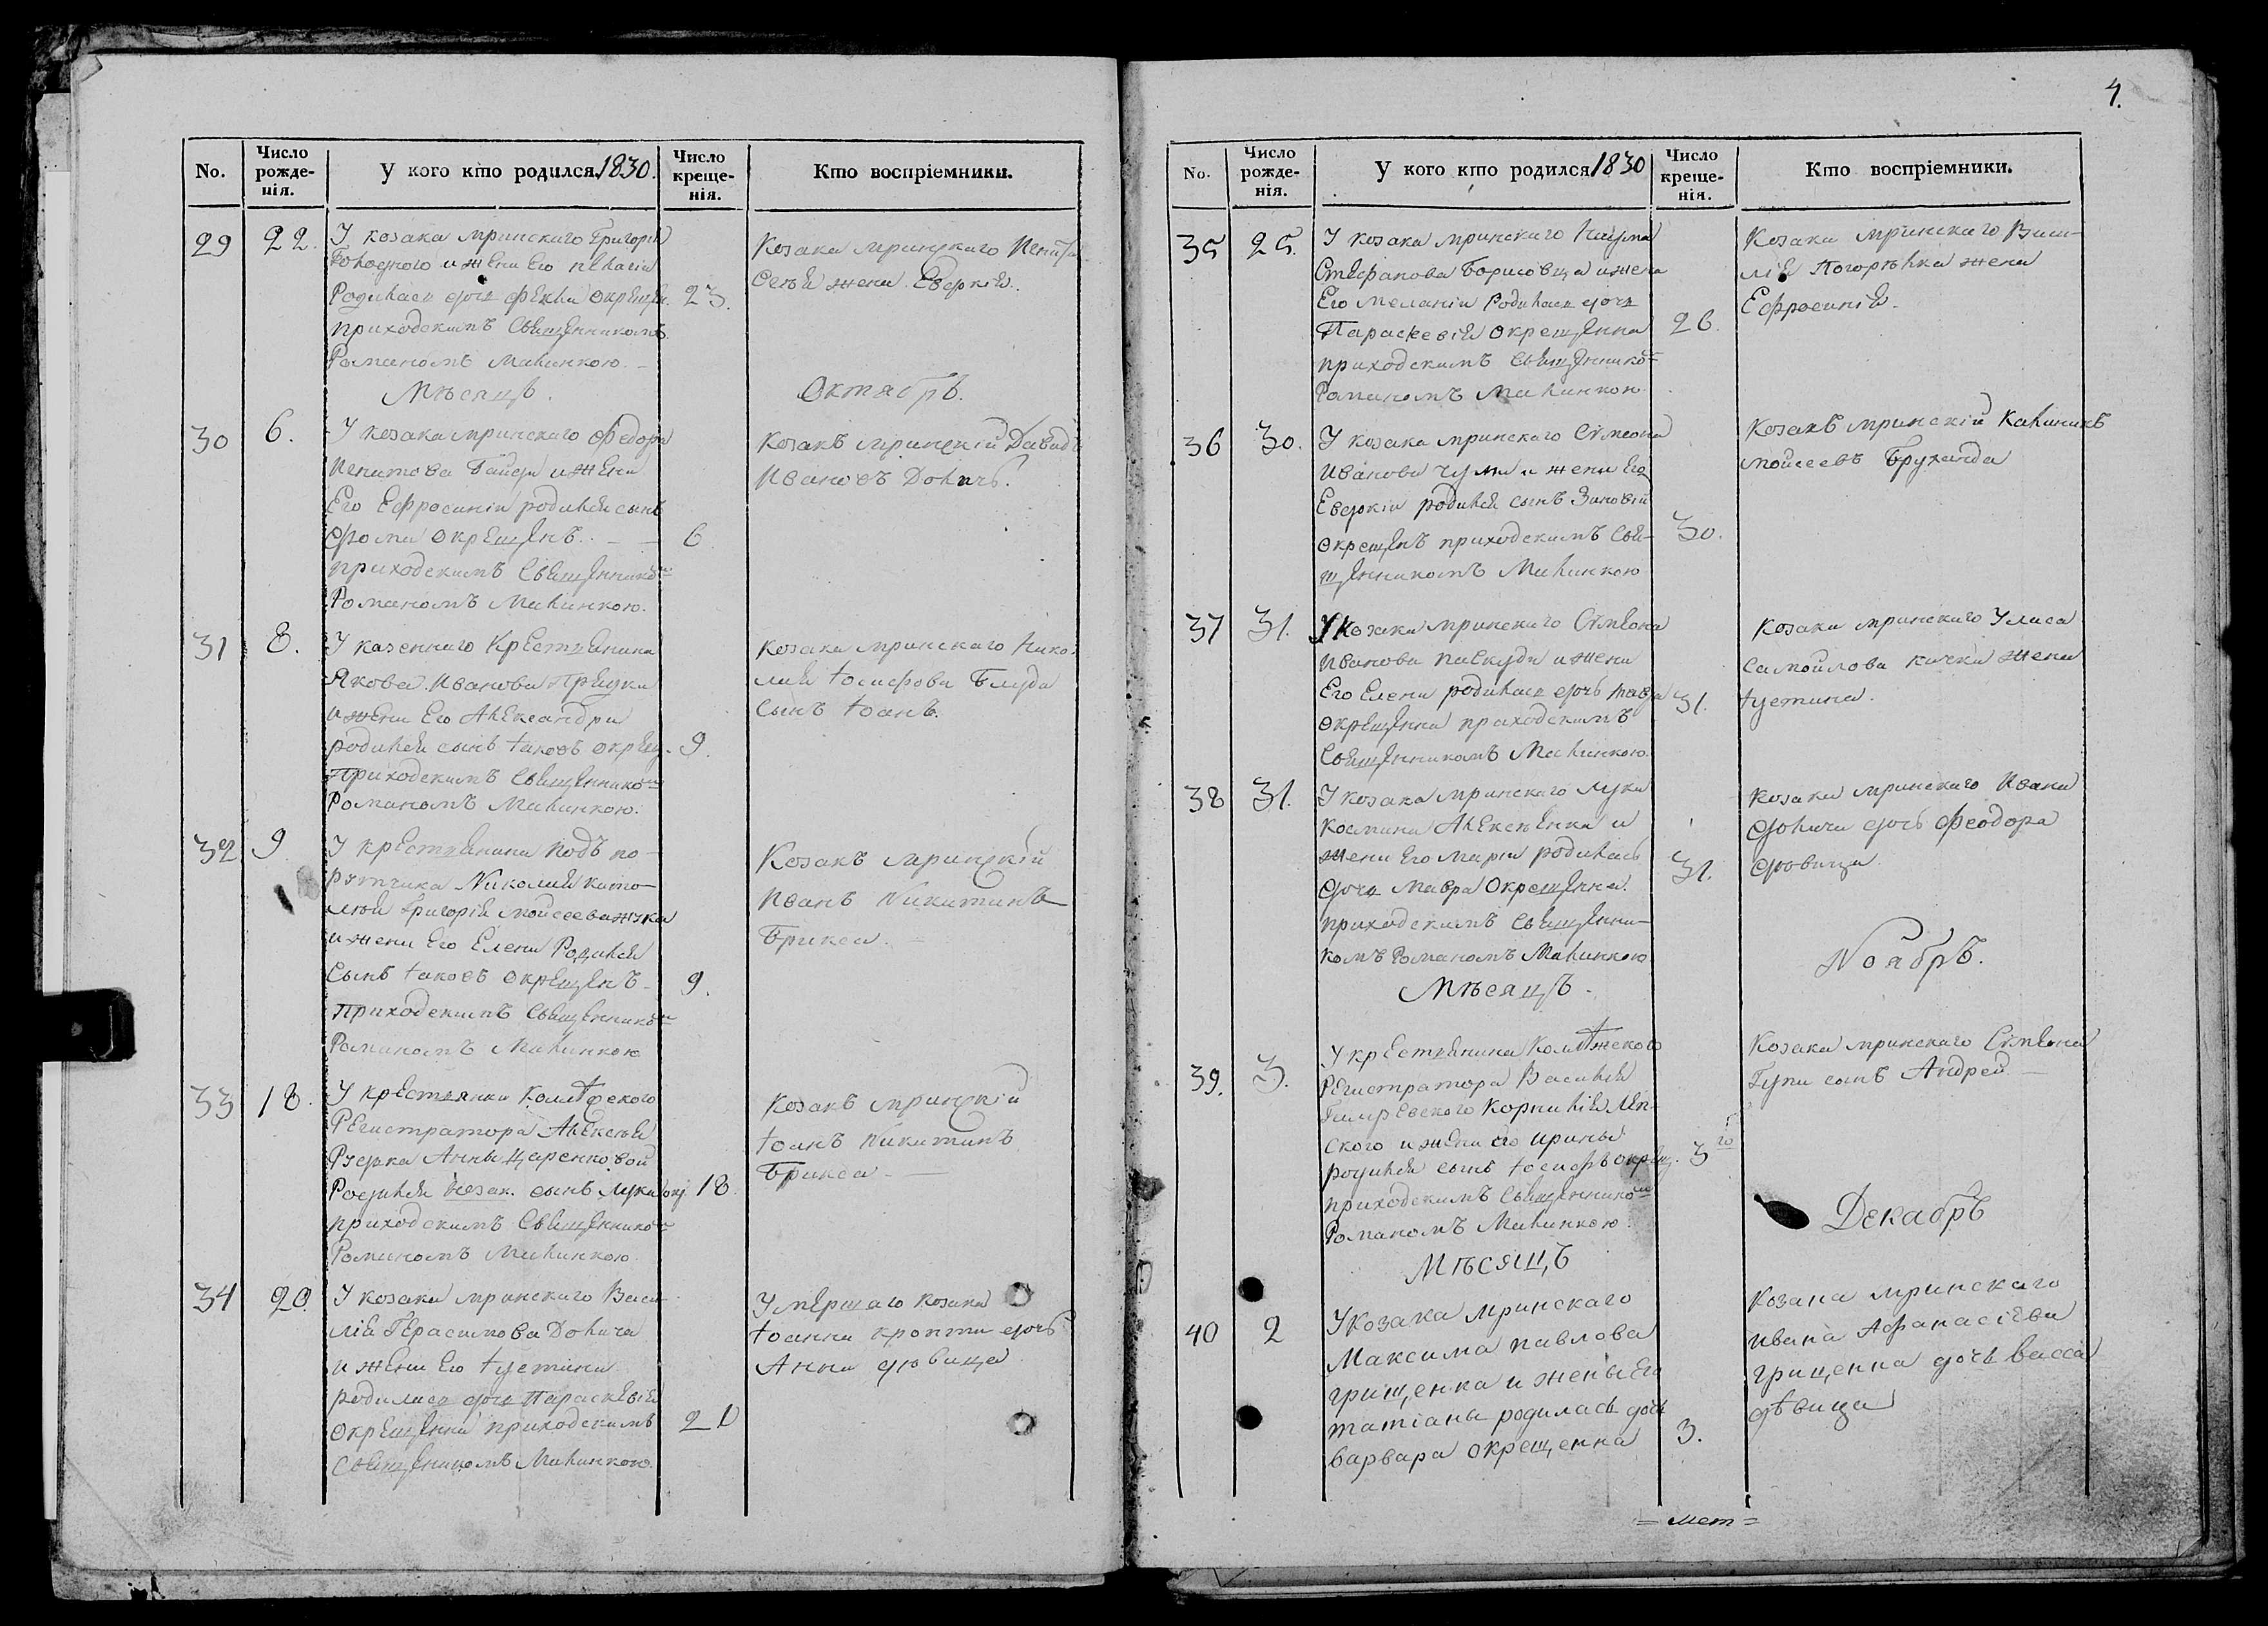 4.
No.
Число рожде-нія.
У кого кто родился. 1830.
Число креще-нія.
Кто воспріемники.
29
22.
У козака мринскаго Григорія
и жены Его
Родилась дочь Окрещен.
23.
приходскимъ Священникомъ
Романомъ Малинкою
Козака мринскаго
жена Евдокія.
Мѣсяцъ.
Октябрь.
30
6.
У козака мринскаго Федора
и жены
Его Ефросиніи родился сынъ
Фома Окрещенъ.
6
приходскимъ Священнико-
Романомъ Малинкою.
Козакъ мринскій Давидъ
Ивановъ
31
8.
У казеннаго Крестьянина
Якова Иванова
и жены Его Александры
родился сынъ Іаковъ окрещ.
9.
Приходскимъ Священнико-
Романомъ Малинкою.
Козака мринскаго Нико-
лая Іосифова
Сынъ Іоанъ.
32
9
У крестьянина подъ по-
ручика Николая
Григорія Мойсеева Жука
и жены Его Елены Родился
Сынъ Іаковъ Окрещенъ
9.
Приходскимъ Священнико-
Романомъ Малинкою
Козакъ мринскій
Иванъ Никитинъ
Брикса.
33
18.
У крестьянки Коллежского
Регистратора Алексея
Рудка Анны Царенковой
Родился незак. сынъ Лука окр.
18.
приходскимъ Священнико-
Романомъ Малинкою
Козакъ мринскій
Іоанъ Никитинъ
Брикса
34
20.
У козака мринскаго Васи-
лія Герасимова
и жены Его Іустины
родилась дочь Параскевія
Окрещенна приходскимъ
21
Священикомъ Малинкою.
Умершаго козака
Іоанна дочь
Анна дѣвица
No.
Число рожде-нія.
У кого кто родился 1830
Число креще-нія.
Кто воспріемники.
35
25.
У козака мринскаго Наума
Стефанова Борисовца и жены
Его Меланіи Родилась дочь
Параскевія Окрещенна
26.
приходскимъ Священнико-
Романомъ Малинкою
Козака мринскаго Васи-
лія жена
Ефросинія.
36
30.
У козака мринскаго Сімеона
Иванова и жены Его
Евдокіи родился сынъ Зиновій
Окрещенъ приходскимъ Свя-
30.
щенникомъ Малинкою
Козакъ мринскій Калиникъ
Мойсеевъ
37
31.
У Козака мринскаго Сімеона
Иванова и жены
Его Елены родилась дочь Мавра
31.
Окрещенна приходскимъ
Священникомъ Малинкою.
Козака мринскаго
Самойлова жена
Іустина.
38
31.
У козака мринскаго Луки
Космина Алексѣенка и
жены Его Маріи родилась
31.
дочь Мавра Окрещенна.
приходскимъ Священни-
комъ Романомъ Малинкою
Козака мринскаго Ивана
дочь Феодора
дѣвица
Мѣсяцъ.
Ноябрь.
39.
3.
У крестьянина Коллежского
Регистратора Василія
Корнилія
ского и жены Его Ирины
родился сынъ Іосифъ окрещ.
3го
приходскимъ Священнико-
Романомъ Малинкою.
Козака мринскаго Сімеона
сынъ Андрей
Мѣсяцъ
Декабрь
40
2
У Козака мринскаго
Максима Павлова
Грищенка и жены Его
Татіаны родилась дочь
Варвара Окрещенна
3.
Козака мринскаго
Ивана Афанасіева
Грищенка дочь Васса
дѣвица
= мет =